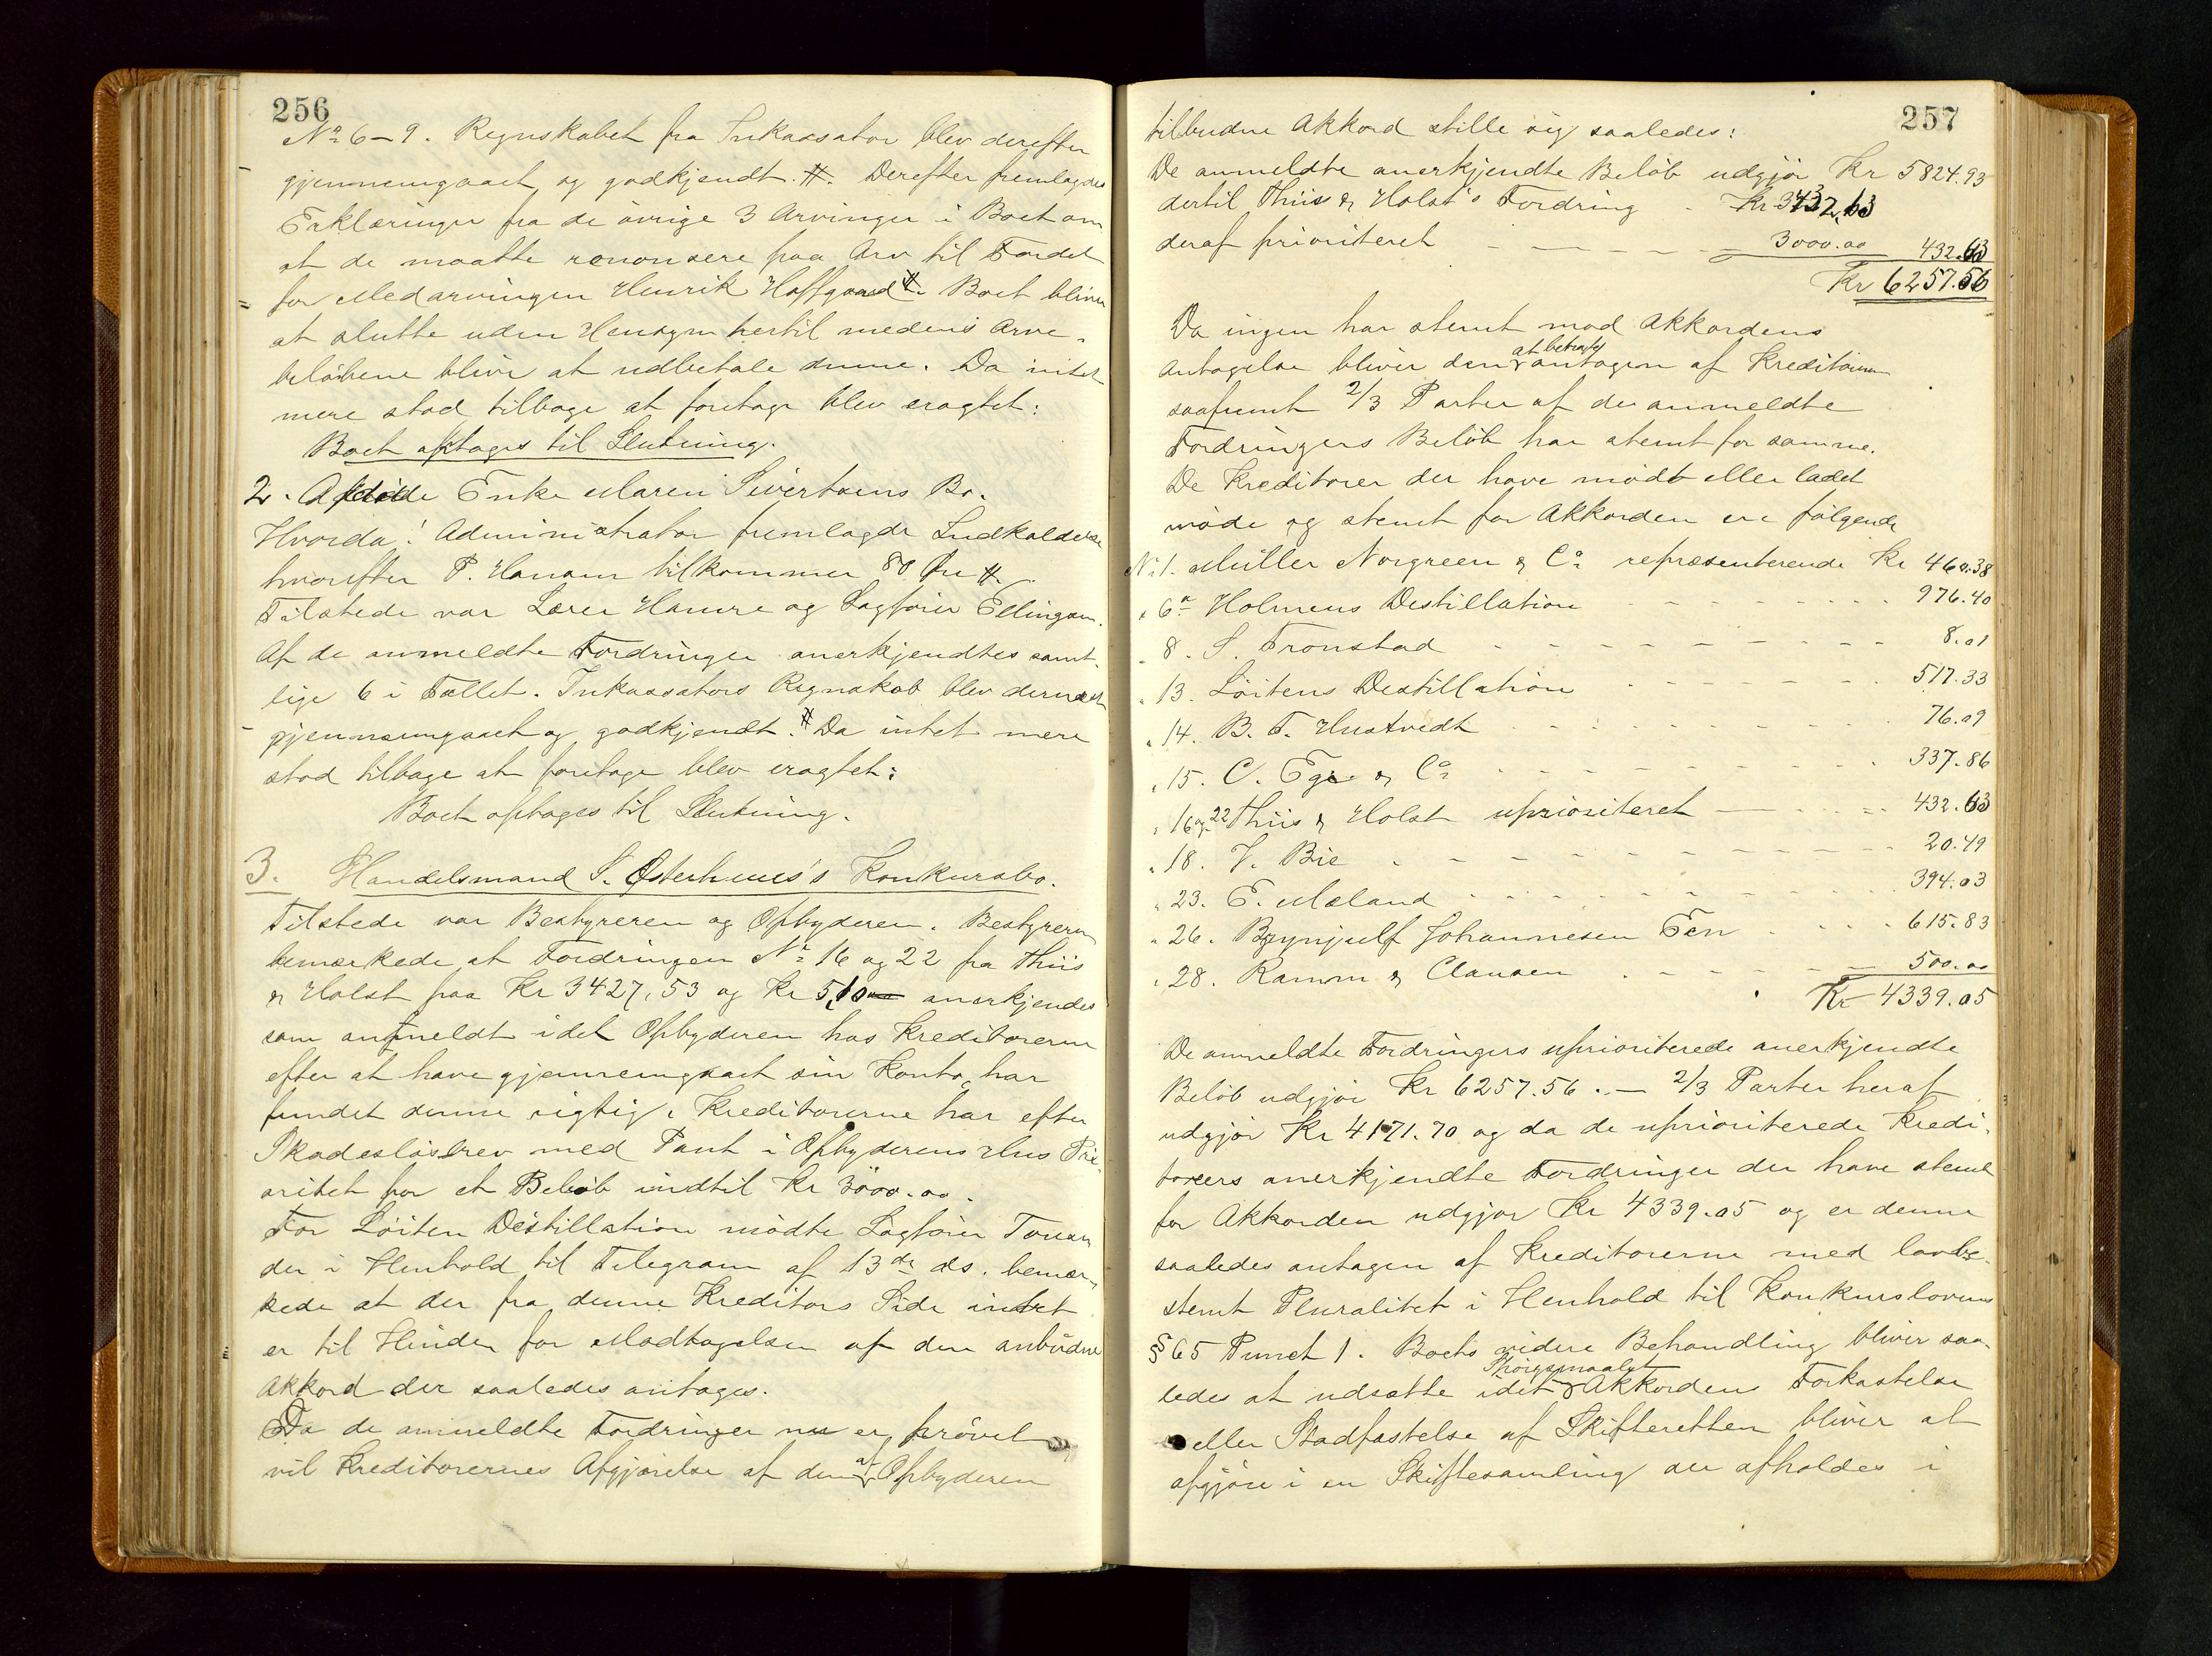 256
No 6-9. Regnskabet fra Inkassator blev derefter
gjennemgaaet og godkjendt. #. Derefter fremlagdes
Erklæringer fra de övrige 3 Arvinger i Boet om
at de maatte renonsere paa Arv til Fordel
for Medarvingen Henrik Hoffgaard #. Boet bliver
at slutte uden Hensyn hertil medens Arve-
belöbene bliver at udbetale denne. Da intet
mere stod tilbage at foretage blev eragtet:
Boet optages til Slutning.
2. Afdöde Enke Maren Sivertsens Bo.
Hvorda: Administrator fremlagde Indkaldelse
hvorefter P. Hansen tilkommer 80 Öre #.
Tilstede var Lærer Hamre og Sagförer Ellingsen.
Af de anmeldte Fordringer anerkjendtes samt-
lige 6 i Tallet. Inkassators Regnskab blev dernæst
gjennemgaaet og godkjendt. # Da intet mere
stod tilbage at foretage blev eragtet:
Boet optages til Slutning.
3. Handelsmand S. Østerhuus's Konkursbo.
Tilstede var Bestyreren og Opbyderen. Bestyreren
bemærkede at Fordringen No 16 og 22 fra Thiis
& Holst paa Kr 3427,53 og Kr 5,10 anerkjendes
som anmeldt idet Opbyderen hos Kreditorerne
efter at have gjennemgaaet sin Konto har
fundet denne rigtig. Kreditorerne har efter
Skadeslösbrev med Pant i Opbyderens Hus Pri-
oritet for et Belöb indtil Kr 3000.00.
For Löiten Destillation mödte Sagförer Tonan
der i Henhold til Telegram af 13de ds. bemær-
kede at der fra denne Kreditors Side intet
er til Hinder for Modtagelsen af den anbudne
Akkord der saaledes antages.
Da de anmeldte Fordringer nu er prövet
vil Kreditorernes Afgjörelse af den af Opbyderen
257
tilbudne Akkord stille sig saaledes:
De anmeldte anerkjendte Belöb udgjör Kr 5824.93
dertil Thiis & Holst's Fordring - Kr 3432,63
deraf prioriteret - - - - - 3000.00 432.63
Kr 6257.56
Da ingen har stemt mod Akkordens
Antagelse bliver den at betragte antagen af Kreditorerne
saafremt 2/3 Parter af de anmeldte
Fordringers Belöb har stemt for samme.
De Kreditorer der have mödt eller ladet
möde og stemt for Akkorden ere fölgende
No 1. Müller Norgreen & Co repræsenterende Kr 460.38
" 6a Holmens Destillation - - - - 976.40
" 8. S. Tronstad - - - - 8.01
" 13. Löitens Destillation - - - - 517.33
" 14. B. T. Hustvedt - - - - 76.09
" 15. C. Eger & Co - - - - 337.86
" 16 og 22 Thiis & Holst uprioriteret - - - 432.63
" 18. V. Bie - - - - 20.49
" 23. E. Mæland - - - - 394.03
" 26. Brynjulf Johannesen Een - - - 615.83
" 28. Ramm & Clausen - - - - 500.00
Kr 4339.05
De anmeldte Fordringers uprioriterede anerkjendte
Belöb udgjör Kr 6257.56. - 2/3 Parter heraf
udgjör Kr 4171.70 og da de uprioriterede Kredi-
torers anerkjendte Fordringer der have stemt
for Akkorden udgjör Kr 4339.05 og er denne
saaledes antagen af Kreditorerne med lovbe-
stemt Pluralitet i Henhold til Konkurslovens
§ 65 Punct 1. Boets videre Behandling bliver saa-
ledes at udsætte idet Spörgsmaalet Akkordens Forkastelse
eller Stadfæstelse af Skifteretten bliver at
afgjöre i en Skiftesamling der afholdes i